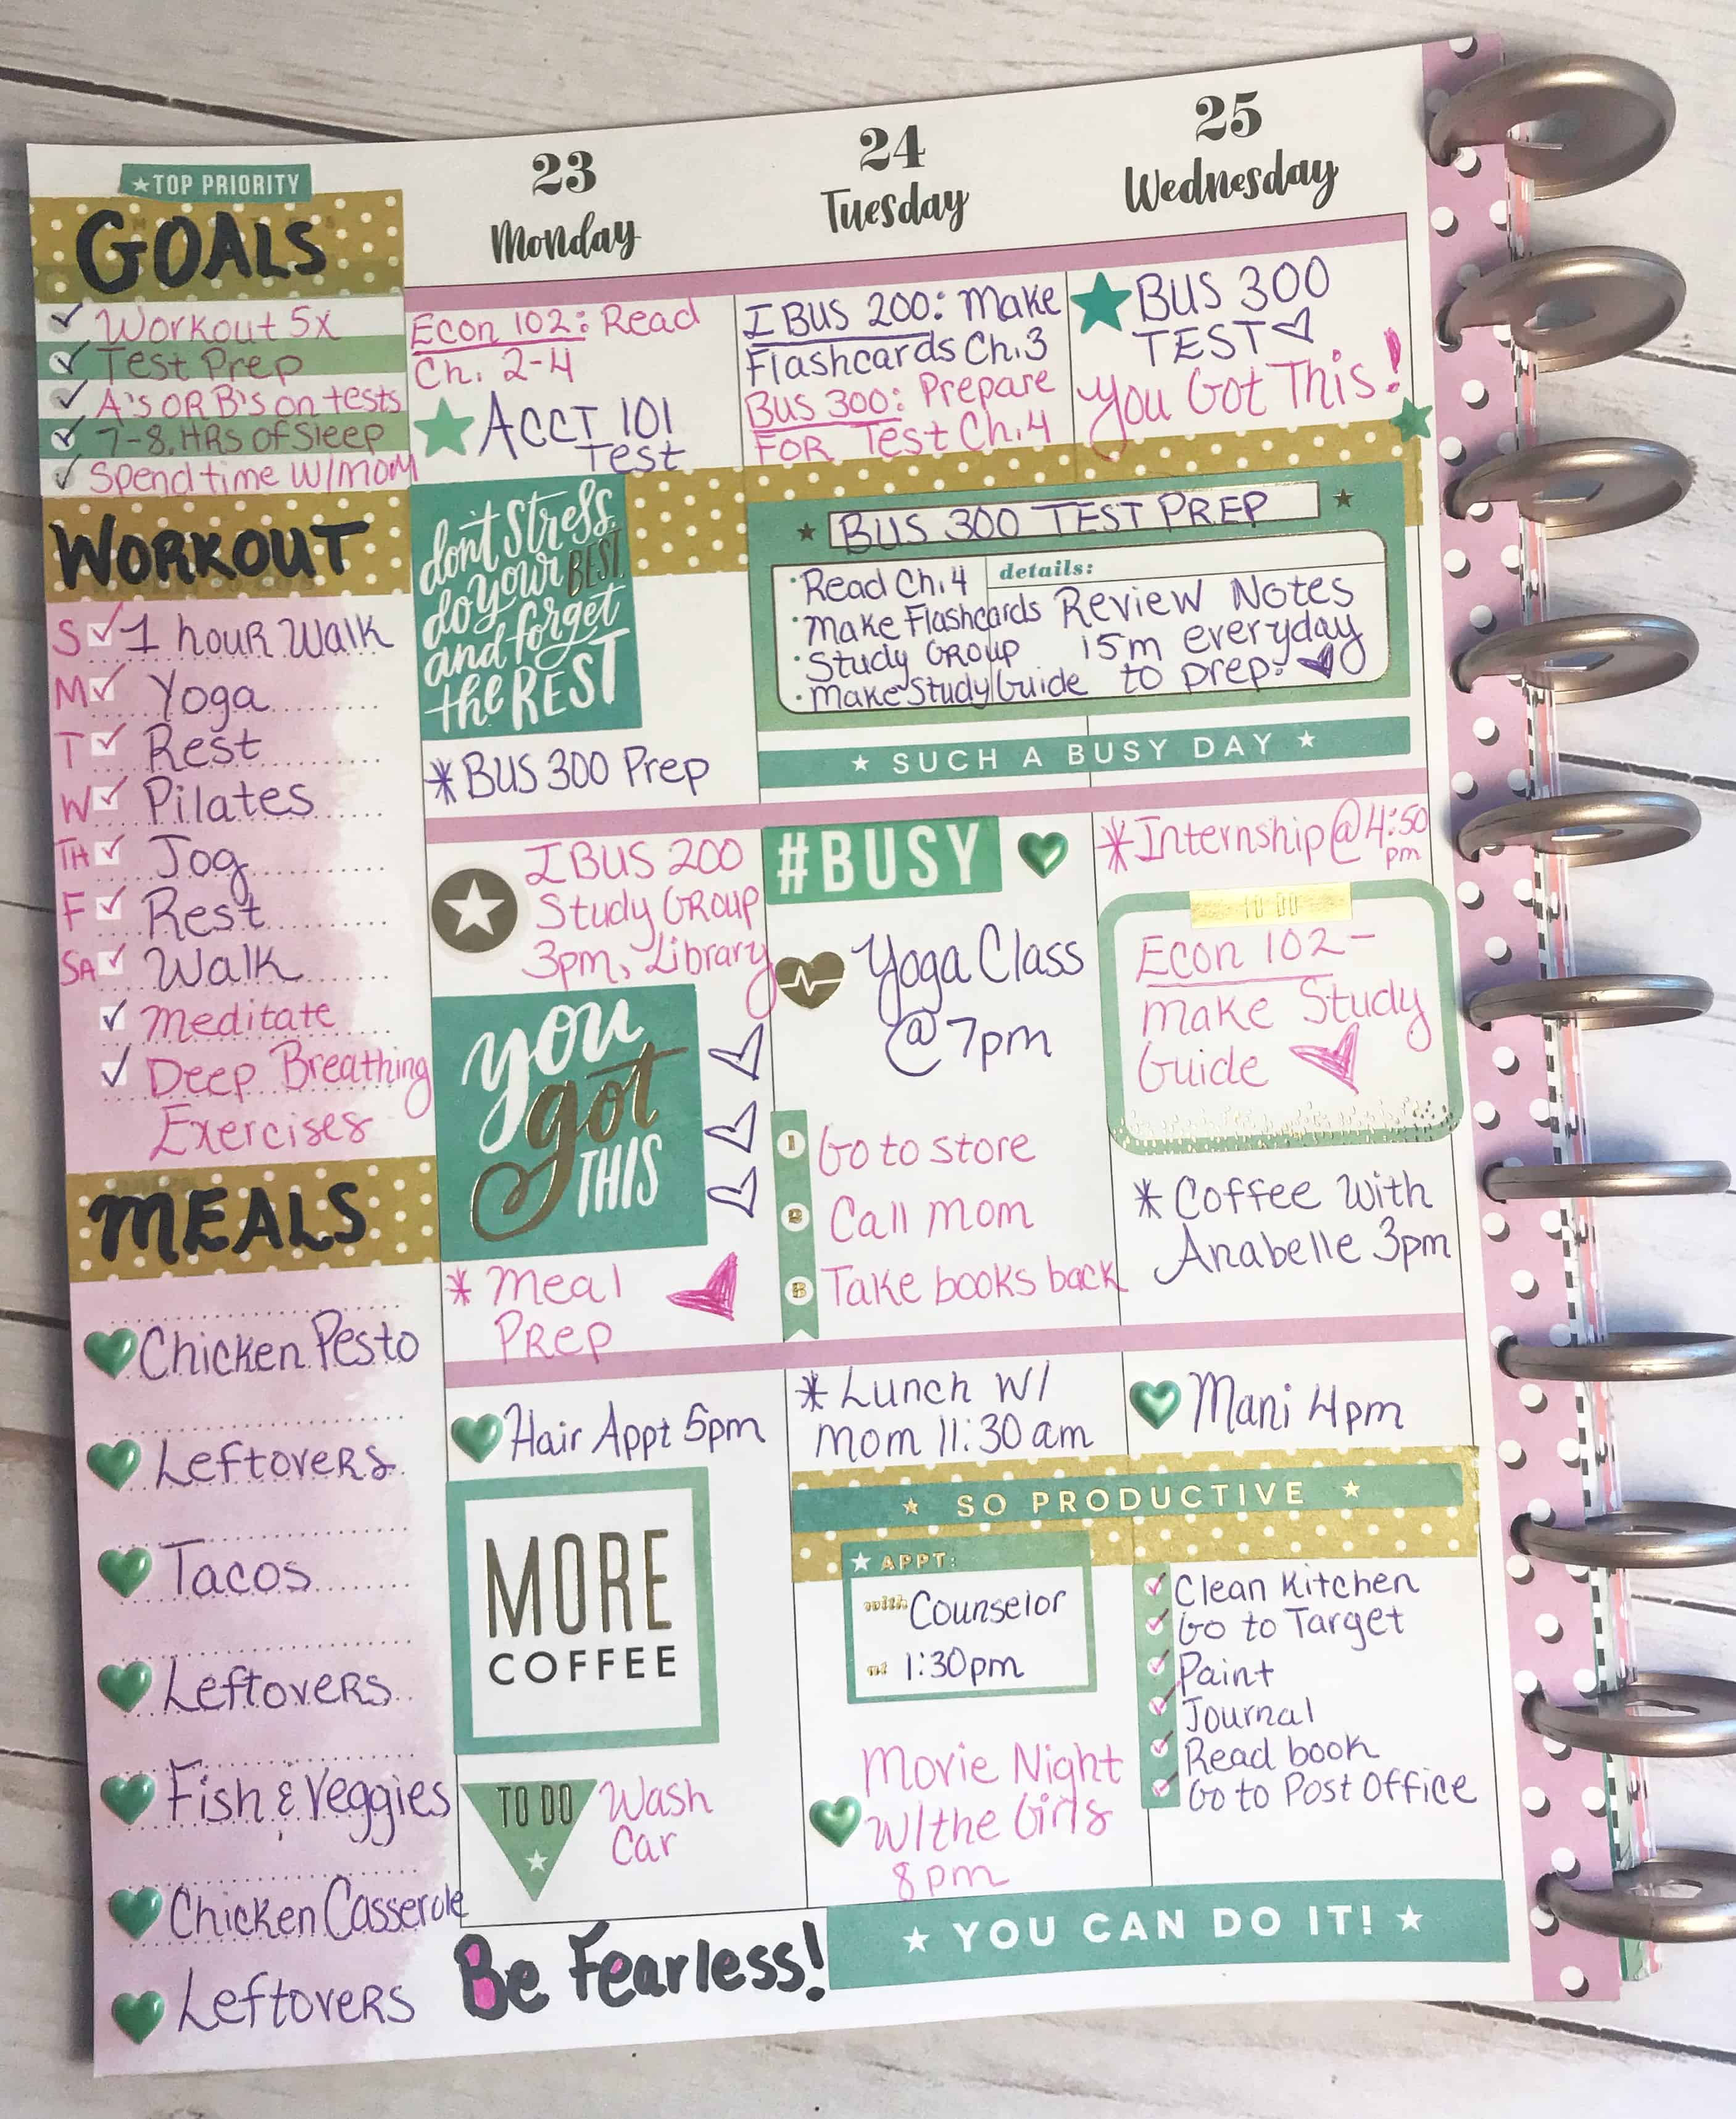 ★TOP PRIORITY
GOALS
Workout 5x
Test Prep
A's OR B's on tests
7-8 HRs of Sleep
Spend time W/MOM
WORKOUT
S 1 hour Walk
M Yoga
T Rest
W Pilates
TH Jog
F Rest
SA Walk
Meditate
Deep Breathing
Exercises
MEALS
Chicken Pesto
Leftovers
Tacos
Leftovers
Fish & Veggies
Chicken Casserole
Leftovers
23
Monday
Econ 102: Read
Ch. 2-4
ACCT 101
Test
don't stress
do your BEST
and forget
the REST
*BUS 300 Prep
IBUS 200
Study Group
3pm, Library
you
got
THIS
*Meal
Prep
Hair Appt 5pm
MORE
COFFEE
TO DO
Wash
Car
Be Fearless!
24
Tuesday
IBUS 200: Make
Flashcards Ch.3
Bus 300: Prepare
FOR Test Ch.4
25
Wednesday
BUS 300
TEST
You Got This!
BUS 300 TEST PREP
·Read Ch.4
·Make Flashcards
·Study Group
·Make Study Guide
details:
Review Notes
15m everyday
to prep!
★ SUCH A BUSY DAY ★
#BUSY
Yoga Class
@ 7pm
1 Go to store
Call mom
Take books back
*Lunch W/
mom 11:30 am
*Internship @ 4:50
pm
TO DO
Econ 102-
make Study
Guide
*Coffee with
Anabelle 3pm
Mani 4pm
★ SO PRODUCTIVE ★
★ APPT:
with Counselor
at 1:30pm
Movie Night
W/the Girls
8pm
Clean Kitchen
Go to Target
Paint
Journal
Read book
Go to Post Office
★ YOU CAN DO IT! ★